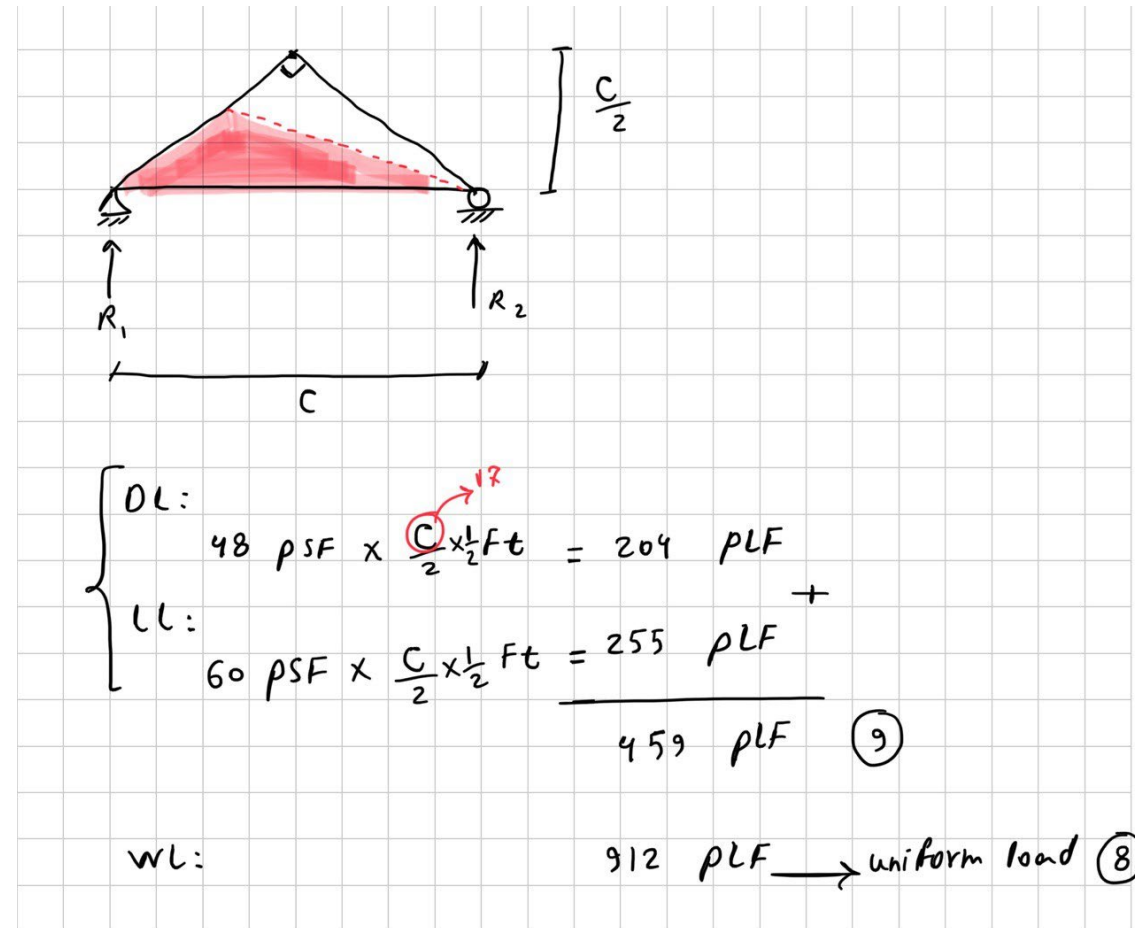 C/2
R₁
R₂
C
DL:
17
48 PSF x C/2 x 1/2 Ft = 204 PLF
+
LL:
60 PSF x C/2 x 1/2 Ft = 255 PLF
459 PLF 9
WL: 912 PLF → uniform load 8